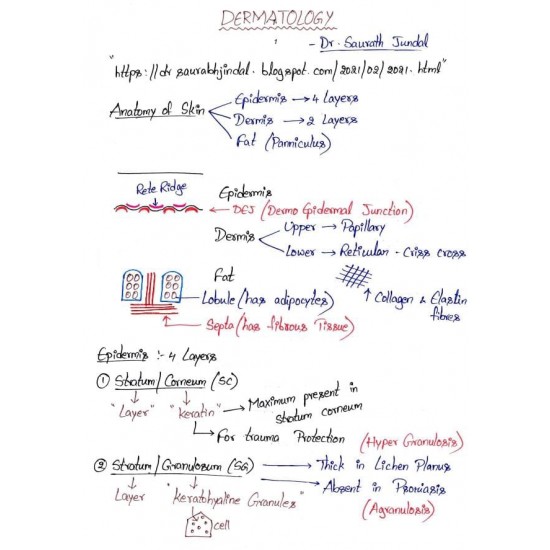 DERMATOLOGY
- Dr. Saurath Jundal
"https://dr saurabhjindal. blogspot.com/2021/02/2021.html"
Anatomy of Skin
Epidermis → 4 Layers
Dermis → 2 Layers
Fat (Panniculus)
Rete Ridge
Epidermis
DEJ (Dermo Epidermal Junction)
Dermis
Upper → Papillary
Lower → Reticular - Criss cross
Fat
Lobule (has adipocytes)
Septa (has fibrous Tissue)
↑ Collagen & Elastin fibres
Epidermis :- 4 Layers
① Stratum/Corneum (SC)
"Layer" "keratin" → Maximum present in stratum corneum
→ For trauma Protection
② Stratum/Granulosum (SG)
(Hyper Granulosis)
→ Thick in Lichen Planus
→ Absent in Psoriasis
(Agranulosis)
Layer "keratohyaline Granules"
cell